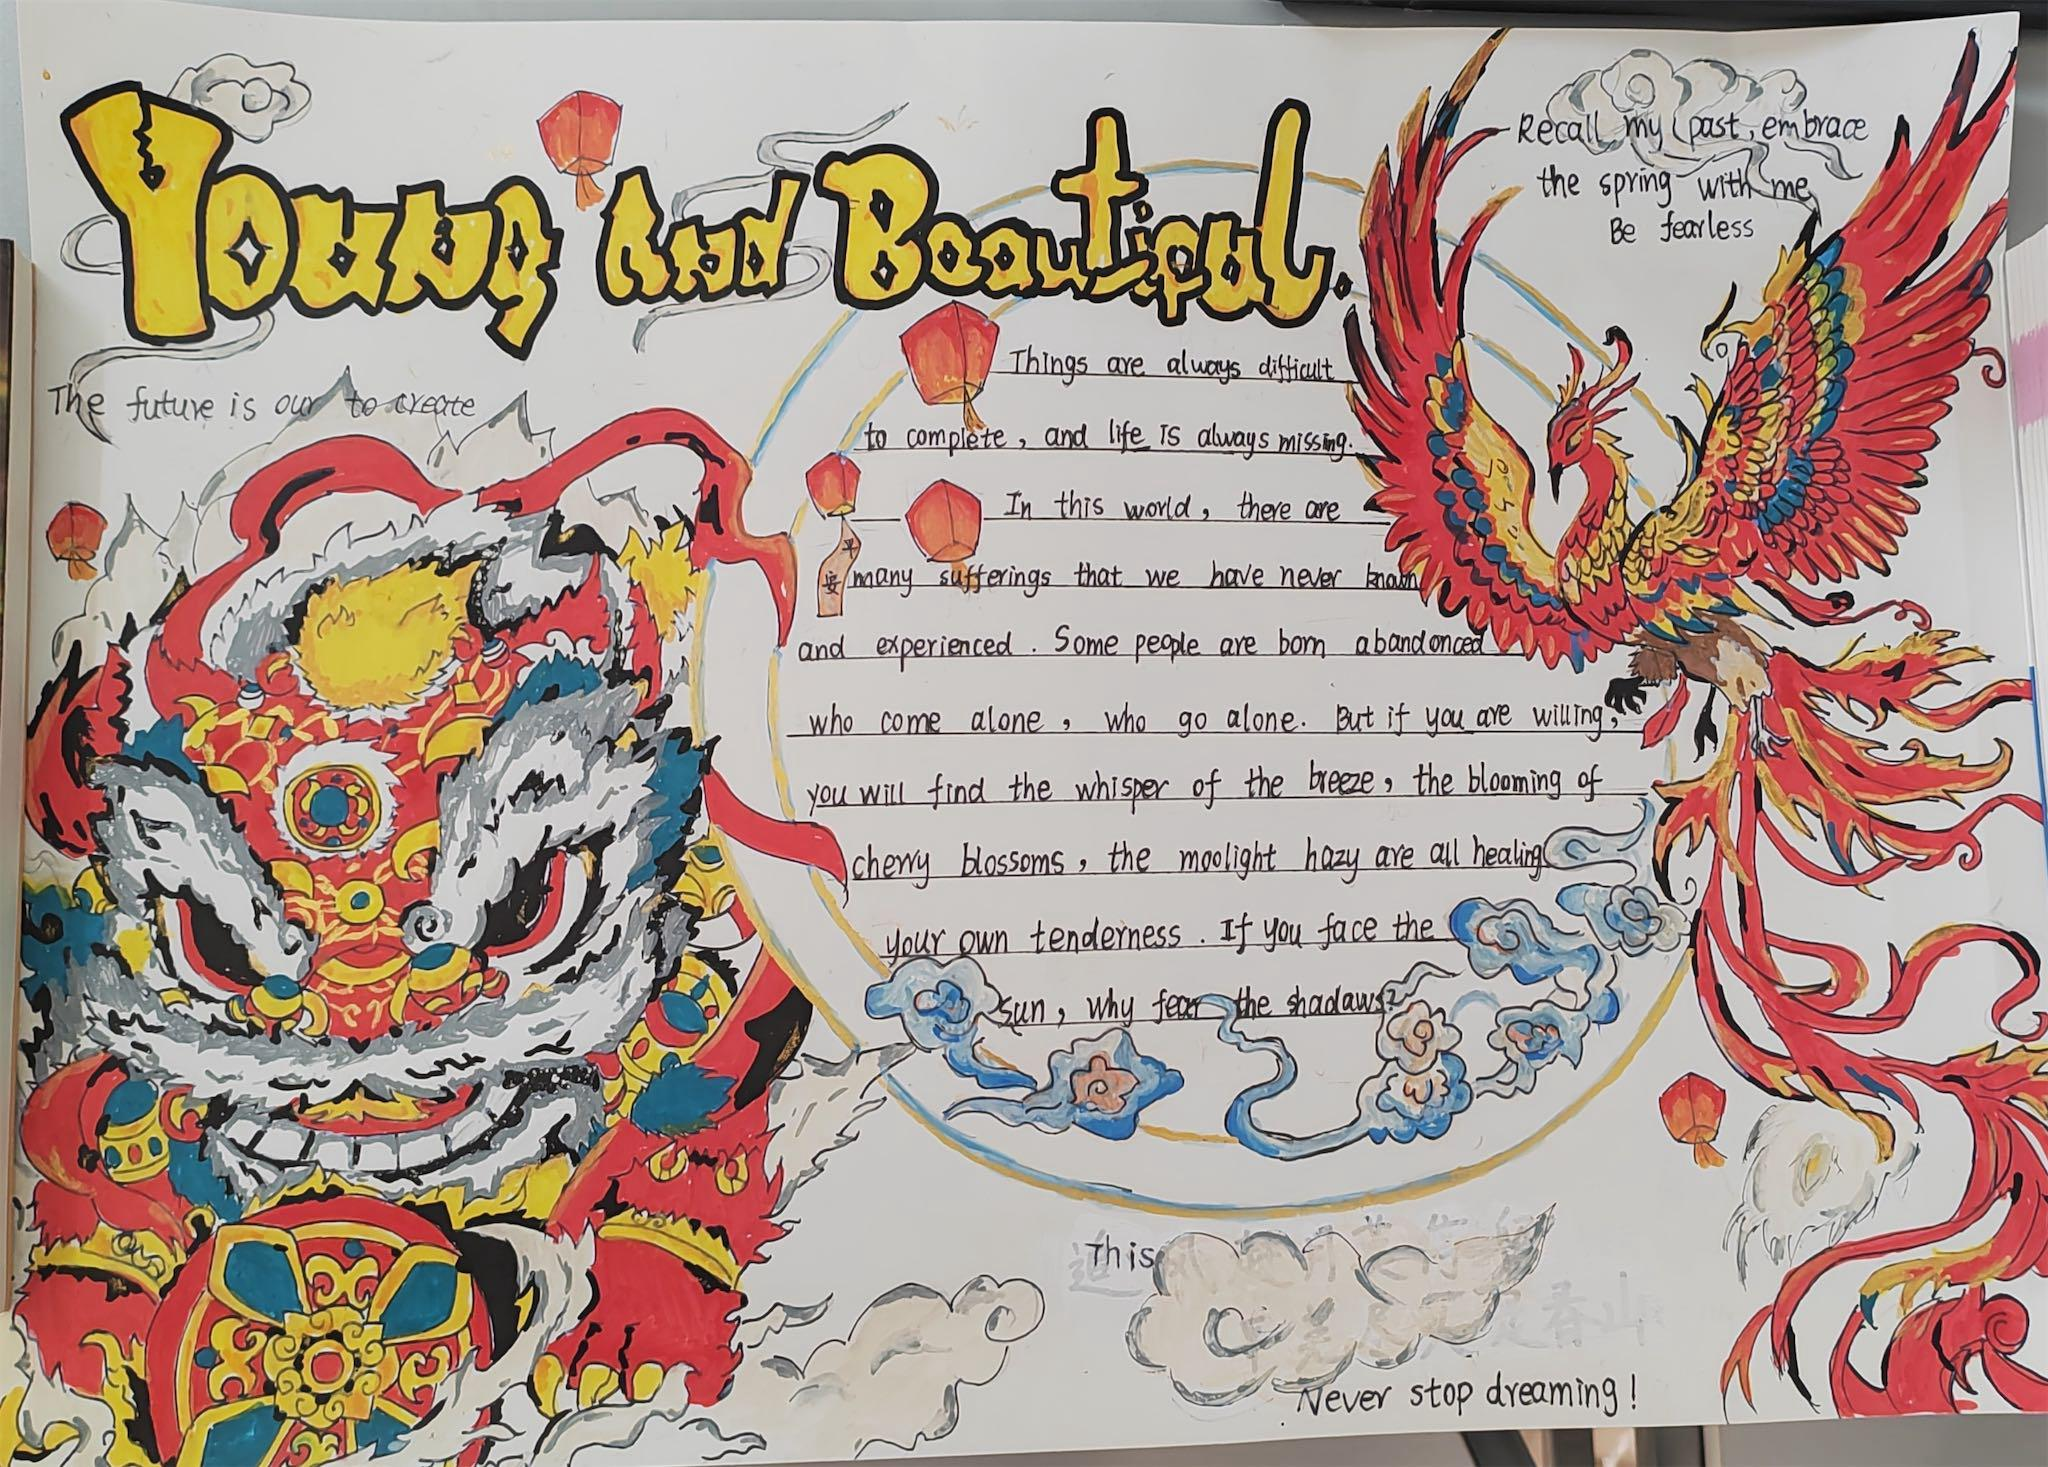 Young And Beautiful.
Recall my past, embrace
the spring with me
Be fearless
The future is our to create
Things are always difficult
to complete, and life is always missing.
In this world, there are
平
安
many sufferings that we have never known
and experienced. Some people are born abandonced
who come alone, who go alone. But if you are willing,
you will find the whisper of the breeze, the blooming of
cherry blossoms, the moolight hazy are all healing
your own tenderness. If you face the
Sun, why fear the shadaws?
This
Never stop dreaming!